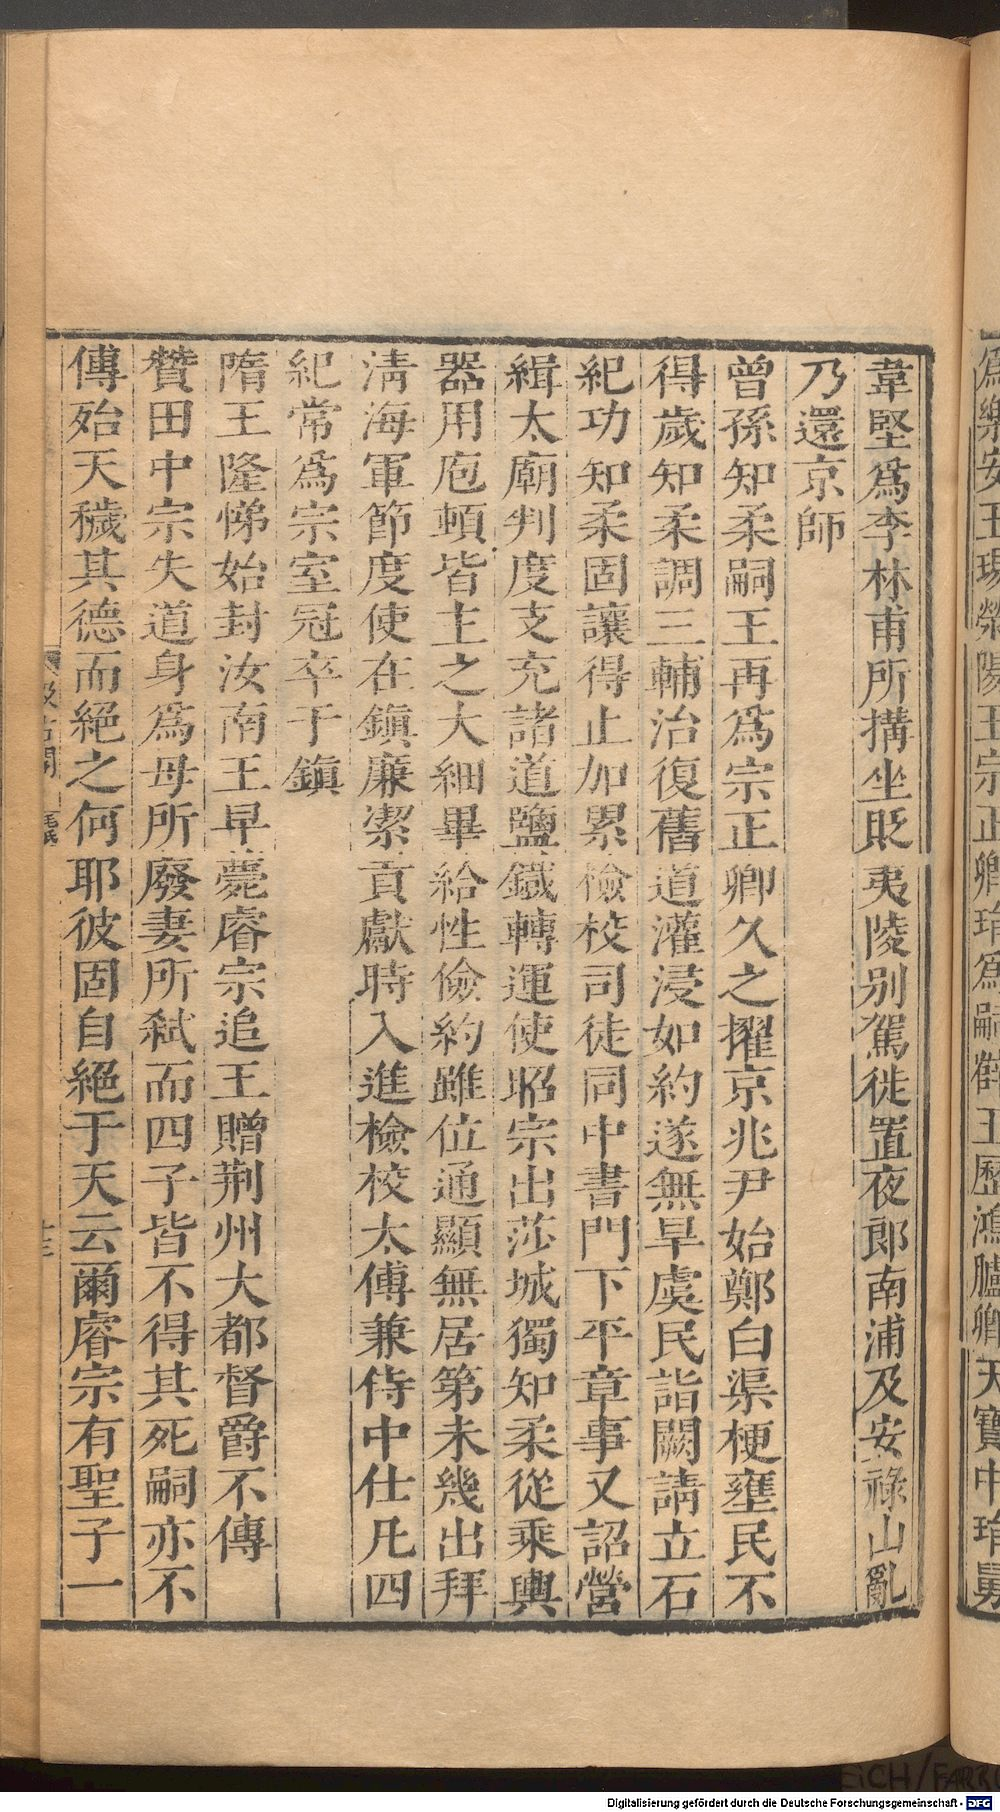 爲樂安王瑒滎陽王宗正卿琄爲嗣鶴王歷鴻臚卿天寶中琄舅
韋堅爲李林甫所搆坐貶夷陵别駕徙置夜郎南浦及安祿山亂
乃還京師
曾孫知柔嗣王再爲宗正卿久之擢京兆尹始鄭白渠梗壅民不
得歲知柔調三輔治復舊道灌浸如約遂無旱虞民詣闕請立石
紀功知柔固讓得止加累檢校司徒同中書門下平章事又詔營
緝太廟判度支充諸道鹽鐵轉運使昭宗出莎城獨知柔從乘輿
器用庖頓皆主之大細畢給性儉約雖位通顯無居第未幾出拜
淸海軍節度使在鎭廉潔貢獻時入進檢校太傅兼侍中仕凡四
紀常爲宗室冠卒于鎭
隋王隆悌始封汝南王早薨睿宗追王贈荆州大都督爵不傳
贊田中宗失道身爲母所廢妻所弒而四子皆不得其死嗣亦不
傳殆天穢其德而絕之何耶彼固自絕于天云爾睿宗有聖子一
汲古閣
毛氏
十三
Digitalisierung gefördert durch die Deutsche Forschungsgemeinschaft - DFG